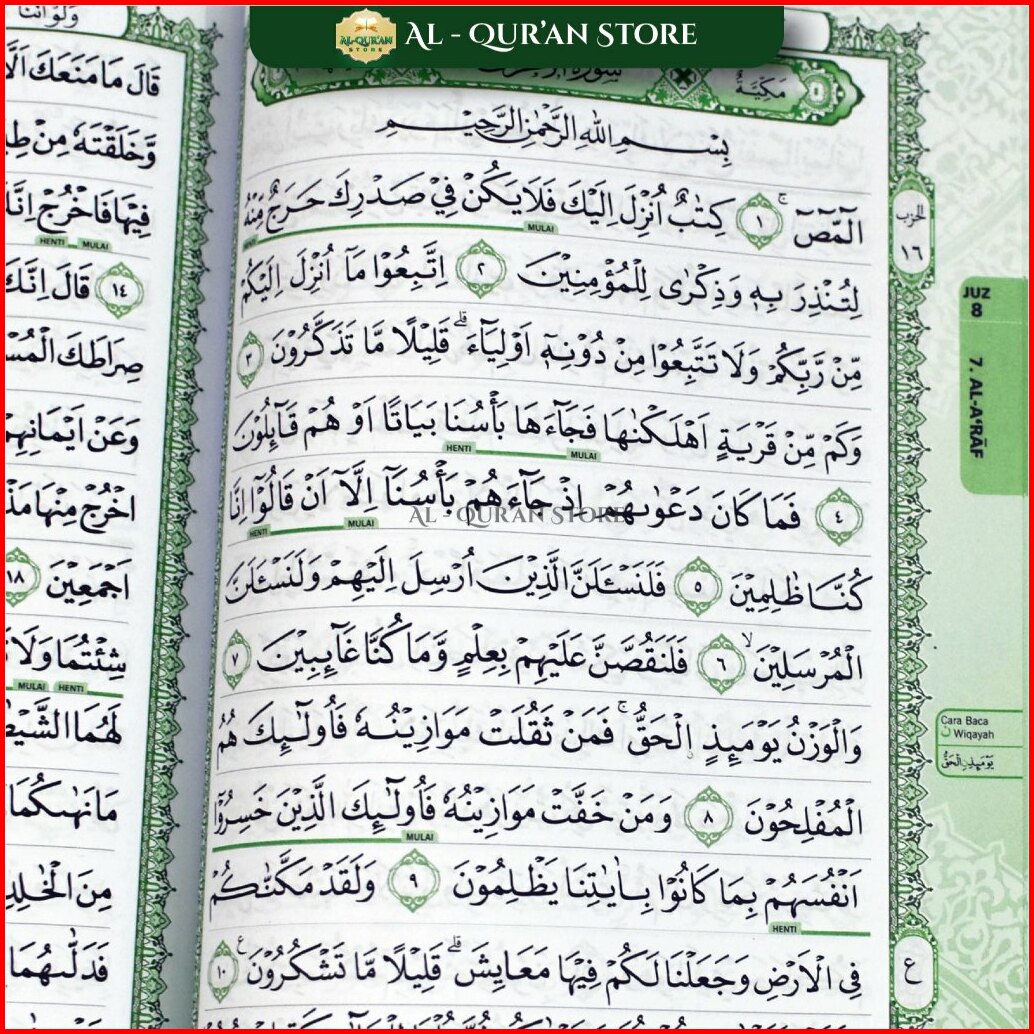 AL-QUR'AN STORE
AL - QUR'AN STORE
مَكِّيَّةٌ
بِسْمِ اللّٰهِ الرَّحْمٰنِ الرَّحِيْمِ
الۤمّۤصۤ ۚ ١ كِتٰبٌ اُنْزِلَ اِلَيْكَ فَلَا يَكُنْ فِيْ صَدْرِكَ حَرَجٌ مِّنْهُ
MULAI
لِتُنْذِرَ بِهٖ وَذِكْرٰى لِلْمُؤْمِنِيْنَ ٢ اِتَّبِعُوْا مَآ اُنْزِلَ اِلَيْكُمْ
مِّنْ رَّبِّكُمْ وَلَا تَتَّبِعُوْا مِنْ دُوْنِهٖٓ اَوْلِيَاۤءَ ۗ قَلِيْلًا مَّا تَذَكَّرُوْنَ ٣
وَكَمْ مِّنْ قَرْيَةٍ اَهْلَكْنٰهَا فَجَاۤءَهَا بَأْسُنَا بَيَاتًا اَوْ هُمْ قَاۤىِٕلُوْنَ
HENTI MULAI
٤ فَمَا كَانَ دَعْوٰىهُمْ اِذْ جَاۤءَهُمْ بَأْسُنَآ اِلَّآ اَنْ قَالُوْٓا اِنَّا
AL - QUR'AN STORE
HENTI MULAI
كُنَّا ظٰلِمِيْنَ ٥ فَلَنَسْـَٔلَنَّ الَّذِيْنَ اُرْسِلَ اِلَيْهِمْ وَلَنَسْـَٔلَنَّ
الْمُرْسَلِيْنَ ۙ ٦ فَلَنَقُصَّنَّ عَلَيْهِمْ بِعِلْمٍ وَّمَا كُنَّا غَاۤىِٕبِيْنَ ٧
وَالْوَزْنُ يَوْمَىِٕذِ ِۨالْحَقُّ ۚ فَمَنْ ثَقُلَتْ مَوَازِيْنُهٗ فَاُولٰۤىِٕكَ هُمُ
الْمُفْلِحُوْنَ ٨ وَمَنْ خَفَّتْ مَوَازِيْنُهٗ فَاُولٰۤىِٕكَ الَّذِيْنَ خَسِرُوْٓا
MULAI
اَنْفُسَهُمْ بِمَا كَانُوْا بِاٰيٰتِنَا يَظْلِمُوْنَ ٩ وَلَقَدْ مَكَّنّٰكُمْ
HENTI
فِى الْاَرْضِ وَجَعَلْنَا لَكُمْ فِيْهَا مَعَايِشَ ۗ قَلِيْلًا مَّا تَشْكُرُوْنَ ࣖ ١٠
الحزب
١٦
ع
JUZ
8
7. AL-A'RĀF
Cara Baca
Wiqayah
يَوْمَىِٕذِ ِۨالْحَقُّ
وَلَوْ اَنَّنَا
قَالَ مَا مَنَعَكَ
وَّخَلَقْتَهٗ مِنْ
فِيْهَا فَاخْرُجْ
HENTI MULAI
١٤ قَالَ اِنَّكَ
صِرَاطَكَ
وَعَنْ
اخْرُجْ مِنْهَا
اَجْمَعِيْنَ ١٨
شِئْتُمَا وَلَا
MULAI HENTI
لَهُمَا
مَا نَهٰىكُمَا
مِنَ
فَدَلّٰىهُمَا